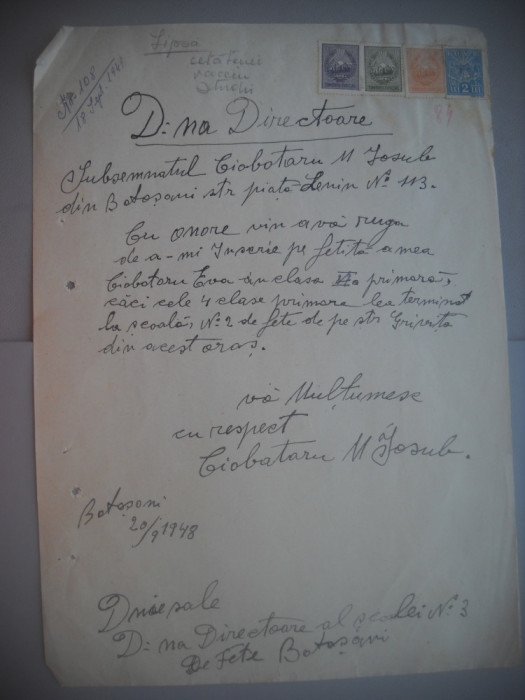 Nr. 108
18 Sept 1948
Lipsa
cetățenie
vaccin
Studii
D:na Directoare
Subsemnatul Ciobotaru M Iosub
din Botoșani str piața Lenin Nº 113.
Cu onore vin a vă ruga
de a-mi Inscrie pe fetița a mea
Ciobotaru Eva în clasa VI a primară,
căci cele 4 clase primare lea terminat
la școală, Nº 2 de fete de pe str Grivița
din acest oraș.
vă Mulțumesc
cu respect
Ciobataru M Iosub.
Botoșani
20/9 1948
D:na Directoare al școlei Nº 3
De Fete Botoșani